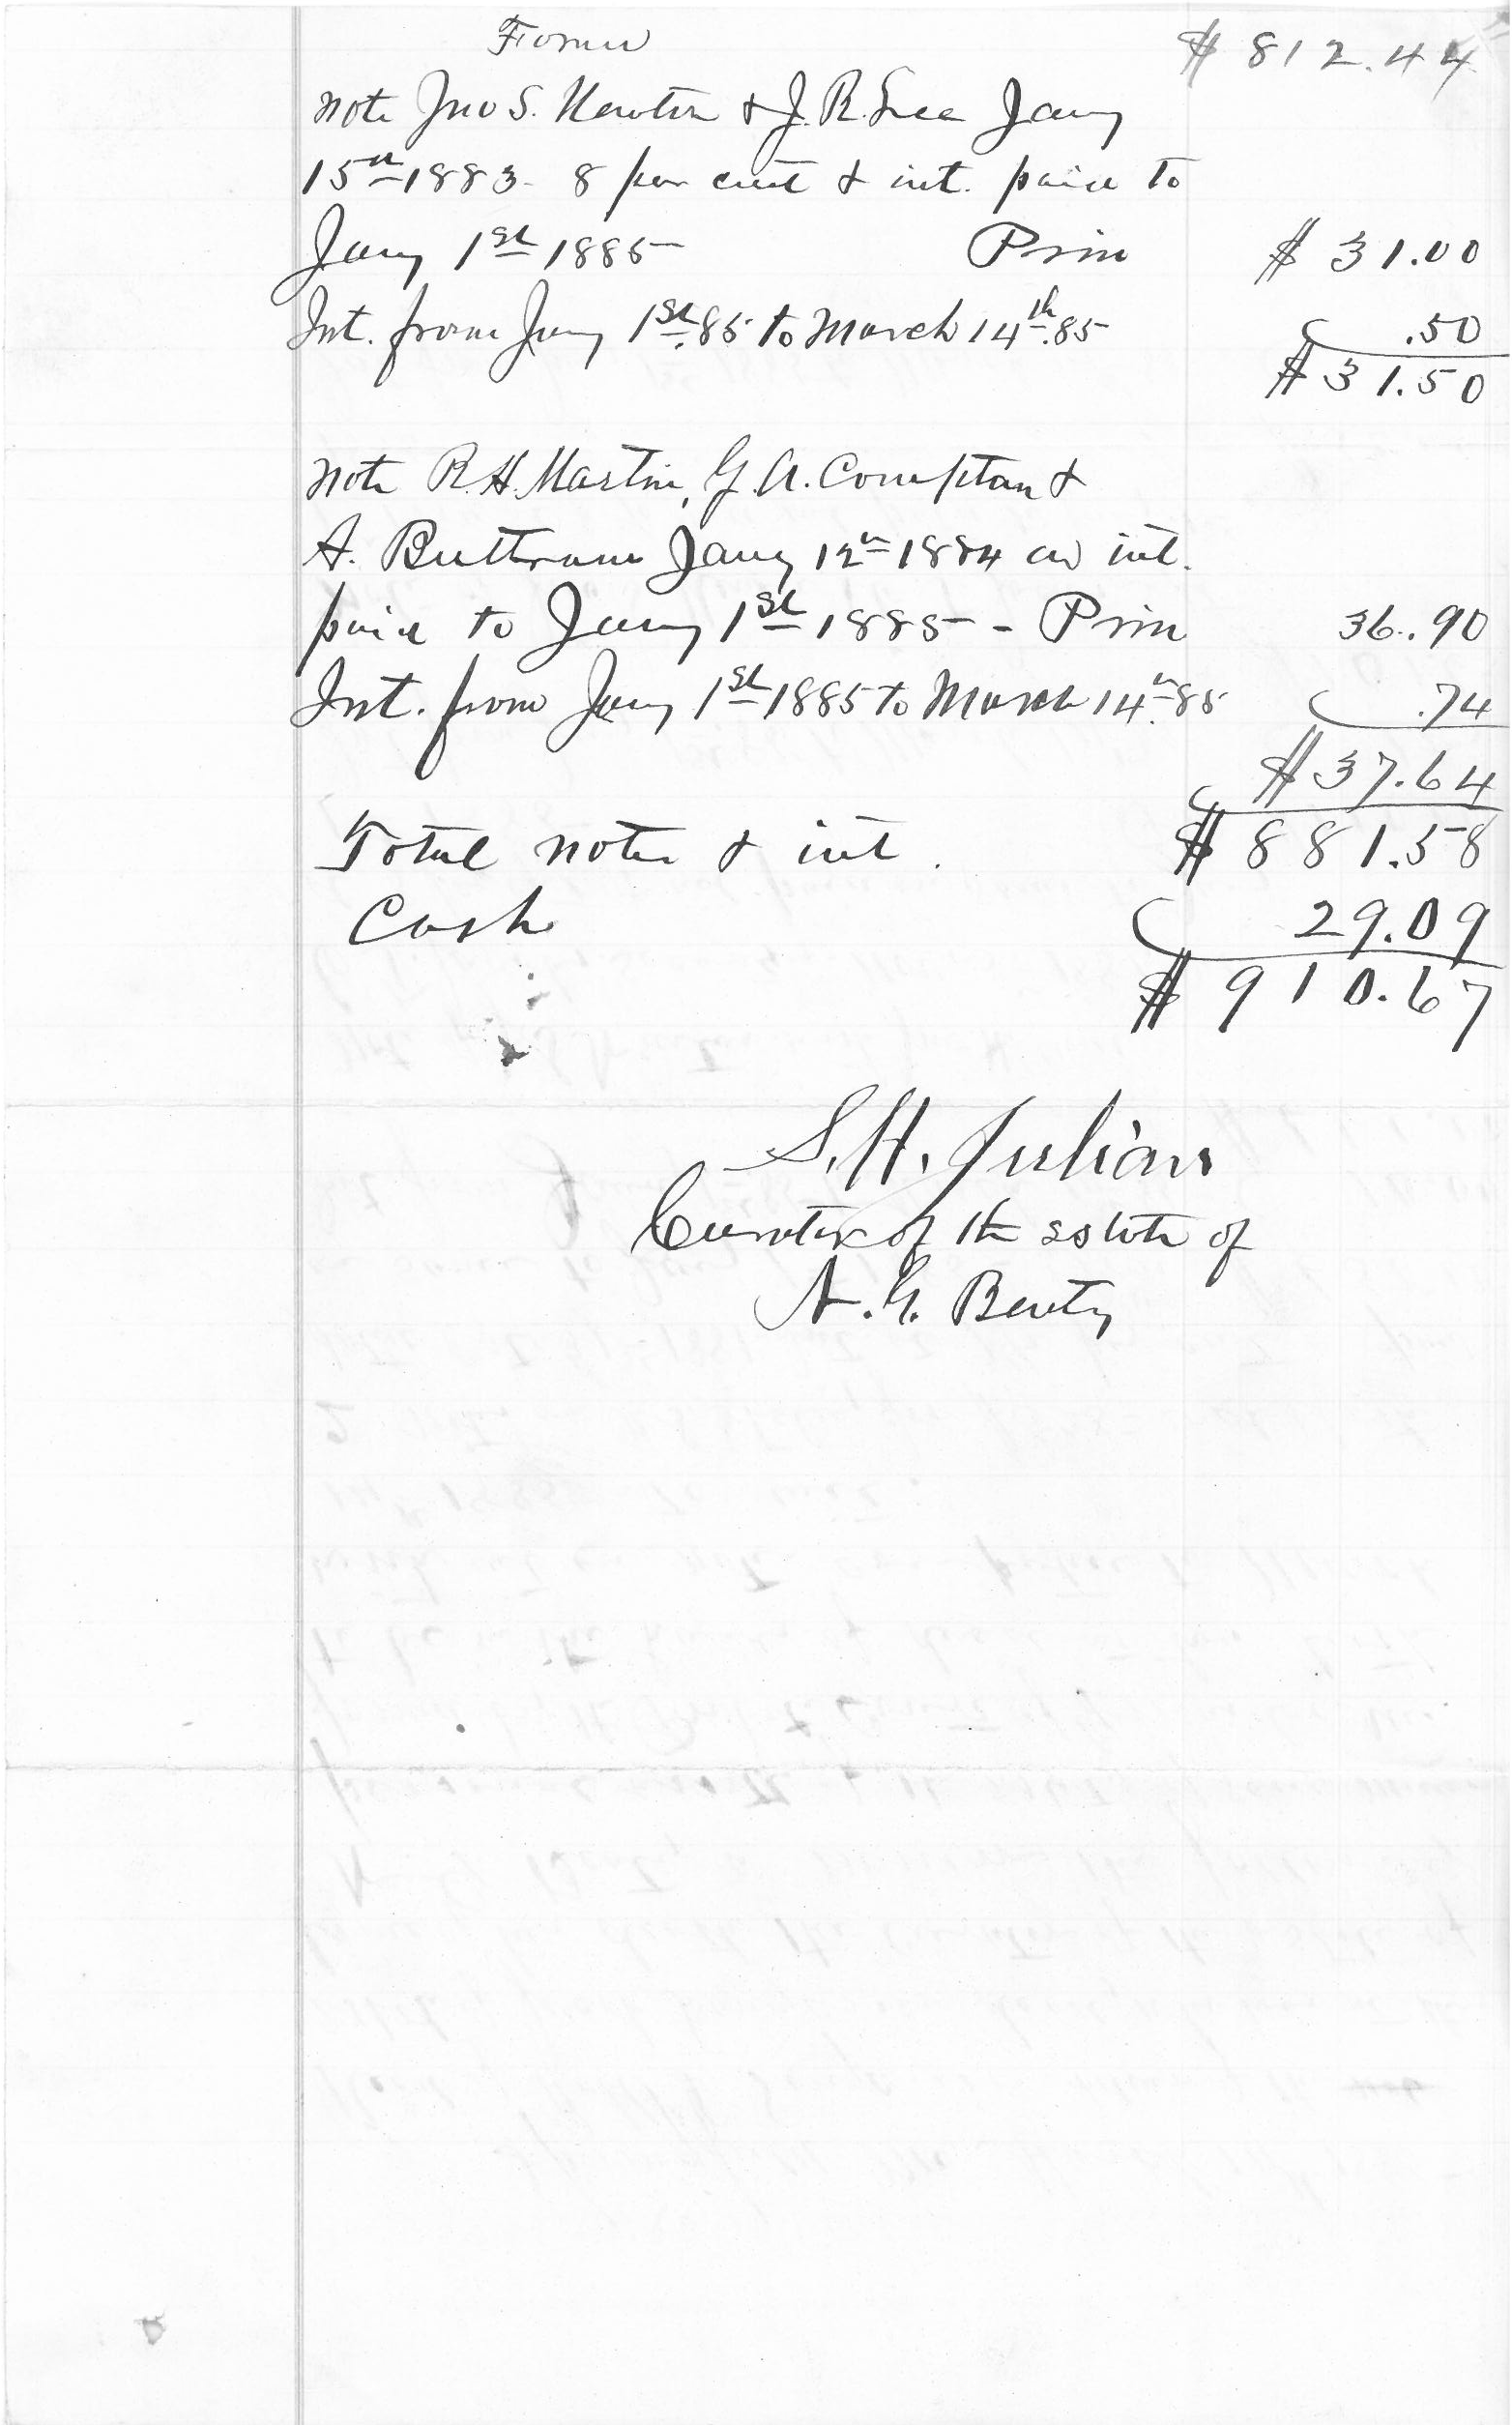 $ 812.44
note Jno S. Newton & J. R. Lee Jany
15th 1883 - 8 per cent & int. paid to
Jany 1st 1885 Prin $ 31.00
Int. from Jany 1st 85 to March 14th 85 .50
$ 31.50
note R. H. Martin, G. A. Compton &
A. Buttram Jany 12th 1884 int.
paid to Jany 1st 1885 - Prin 36.90
Int. from Jany 1st 1885 to March 14th 85 .74
$ 37.64
Total notes & int. $ 881.58
Cash 29.09
$ 910.67
S. H. Julian
of the estate of
A. G. Benty